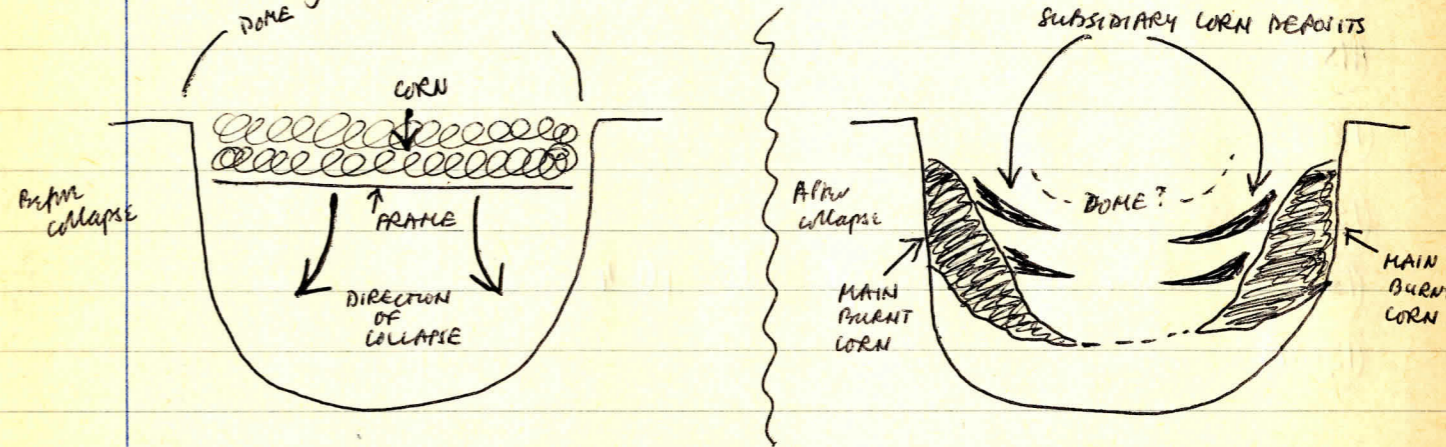 DOME
CORN
Before
collapse
FRAME
DIRECTION
OF
COLLAPSE
SUBSIDIARY CORN DEPOSITS
After
collapse
DOME?
MAIN
BURNT
CORN
MAIN
BURNT
CORN